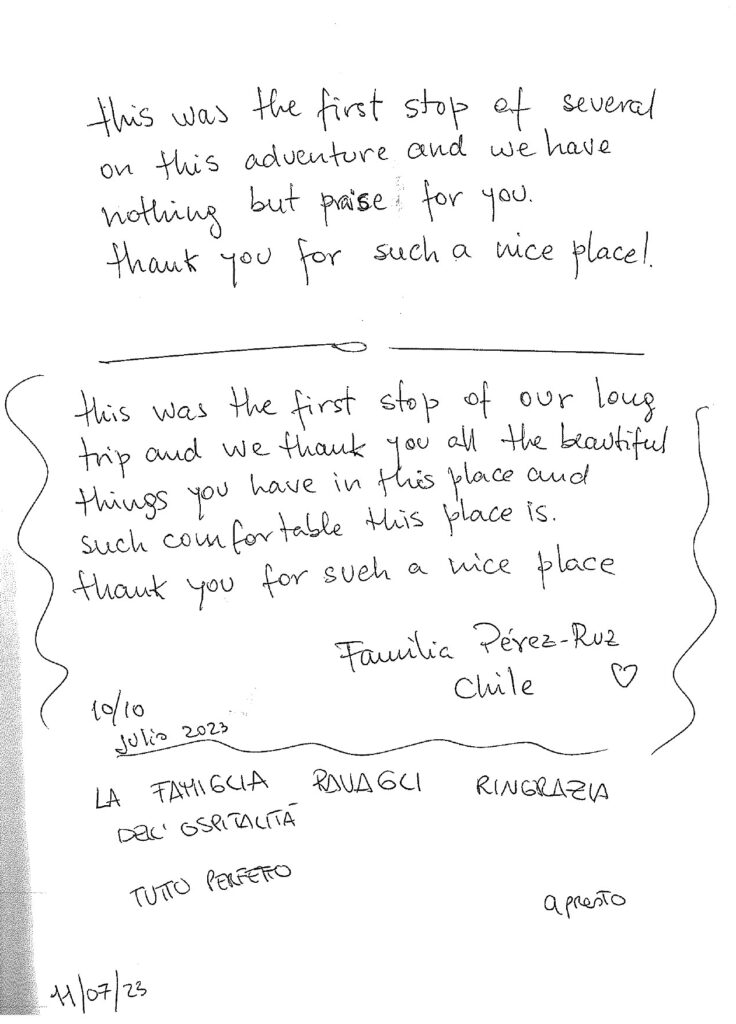 this was the first stop of several
on this adventure and we have
nothing but praise for you.
thank you for such a nice place!
this was the first stop of our long
trip and we thank you all the beautiful
things you have in this place and
such comfortable this place is.
thank you for such a nice place
Familia Pérez-Ruz
Chile
10/10
Julio 2023
LA FAMIGLIA RAVAGLI RINGRAZIA
DELL' OSPITALITÀ
TUTTO PERFETTO
a presto
11/07/23